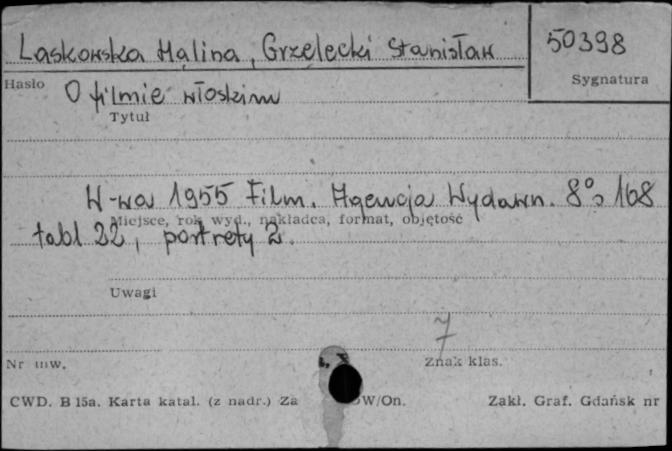 Laskowska Halina, Grzelecki Stanisław
50398
Hasło
Sygnatura
O filmie włoskim
Tytuł
W-wa 1955 Film. Agencja Wydawn. 8°, 168
Miejsce, rok wyd., nakładca, format, objętość
tabl 22, portrety 2.
Uwagi
7
Nr inw.
Znak klas.
CWD. B 15a. Karta katal. (z nadr.) Za W/On.
Zakł. Graf. Gdańsk nr